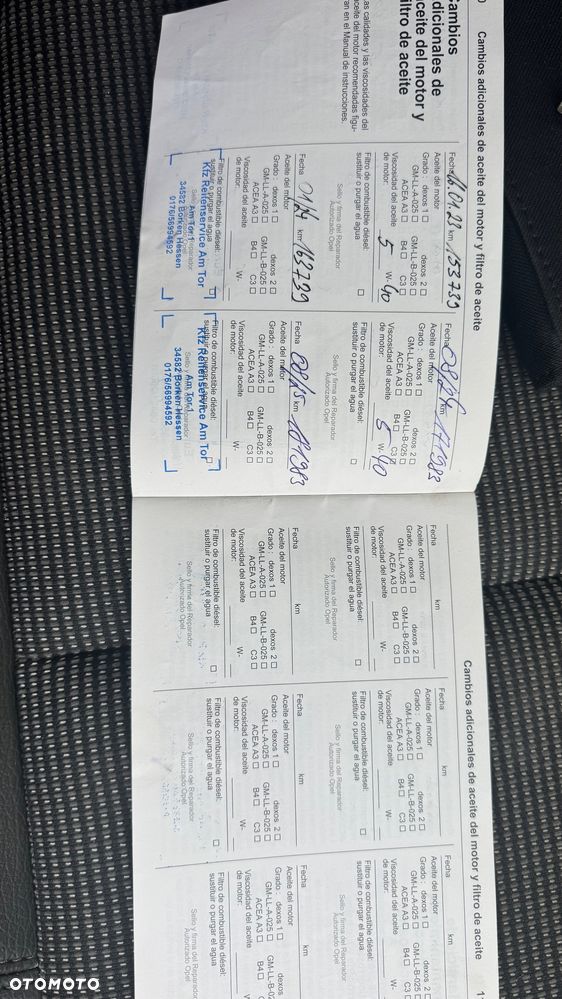 Cambios adicionales de aceite del motor y filtro de aceite
Cambios
adicionales de
aceite del motor y
filtro de aceite
las calidades y las viscosidades del
aceite del motor recomendadas figu-
ran en el Manual de instrucciones.
Fecha km 153739
Aceite del motor
Grado : dexos 1 dexos 2
GM-LL-A-025 GM-LL-B-025
ACEA A3 B4 C3
Viscosidad del aceite
de motor: 5 W- 40
Filtro de combustible diésel:
sustituir o purgar el agua
Sello y firma del Reparador
Autorizado Opel
Fecha 01/24 km 163739
Aceite del motor
Grado : dexos 1 dexos 2
GM-LL-A-025 GM-LL-B-025
ACEA A3 B4 C3
Viscosidad del aceite
de motor: W-
Filtro de combustible diésel:
sustituir o purgar el agua
Kfz Reifenservice Am Tor
Am Tor 1
34582 Borken Hessen
0176/66994592
Fecha 08.24 km 171983
Aceite del motor
Grado : dexos 1 dexos 2
GM-LL-A-025 GM-LL-B-025
ACEA A3 B4 C3
Viscosidad del aceite
de motor: 5 W- 40
Filtro de combustible diésel:
sustituir o purgar el agua
Sello y firma del Reparador
Autorizado Opel
Fecha km 181983
Aceite del motor
Grado : dexos 1 dexos 2
GM-LL-A-025 GM-LL-B-025
ACEA A3 B4 C3
Viscosidad del aceite
de motor: W-
Filtro de combustible diésel:
sustituir o purgar el agua
Kfz Reifenservice Am Tor
Am Tor 1
34582 Borken Hessen
0176/66994592
Cambios adicionales de aceite del motor y filtro de aceite 1
Fecha km
Aceite del motor
Grado : dexos 1 dexos 2
GM-LL-A-025 GM-LL-B-025
ACEA A3 B4 C3
Viscosidad del aceite
de motor: W-
Filtro de combustible diésel:
sustituir o purgar el agua
Sello y firma del Reparador
Autorizado Opel
Fecha km
Aceite del motor
Grado : dexos 1 dexos 2
GM-LL-A-025 GM-LL-B-025
ACEA A3 B4 C3
Viscosidad del aceite
de motor: W-
Filtro de combustible diésel:
sustituir o purgar el agua
Sello y firma del Reparador
Autorizado Opel
Fecha km
Aceite del motor
Grado : dexos 1 dexos 2
GM-LL-A-025 GM-LL-B-025
ACEA A3 B4 C3
Viscosidad del aceite
de motor: W-
Filtro de combustible diésel:
sustituir o purgar el agua
Sello y firma del Reparador
Autorizado Opel
Fecha km
Aceite del motor
Grado : dexos 1 dexos 2
GM-LL-A-025 GM-LL-B-025
ACEA A3 B4 C3
Viscosidad del aceite
de motor: W-
Filtro de combustible diésel:
sustituir o purgar el agua
Sello y firma del Reparador
Autorizado Opel
Fecha km
Aceite del motor
Grado : dexos 1 dexos 2
GM-LL-A-025 GM-LL-B-02
ACEA A3 B4
Viscosidad del aceite
de motor: W-
Filtro de combustible diésel:
sustituir o purgar el agua
Sello y firma del Reparador
Autorizado Opel
Fecha km
Aceite del motor
Grado : dexos 1 dexos
GM-LL-A-025 GM-LL-B-02
ACEA A3 B4
Viscosidad del aceite
de motor:
Filtro de combustible diésel:
sustituir o purgar el agua
Sello y firma del Reparador
Autorizado Opel
OTOMOTO